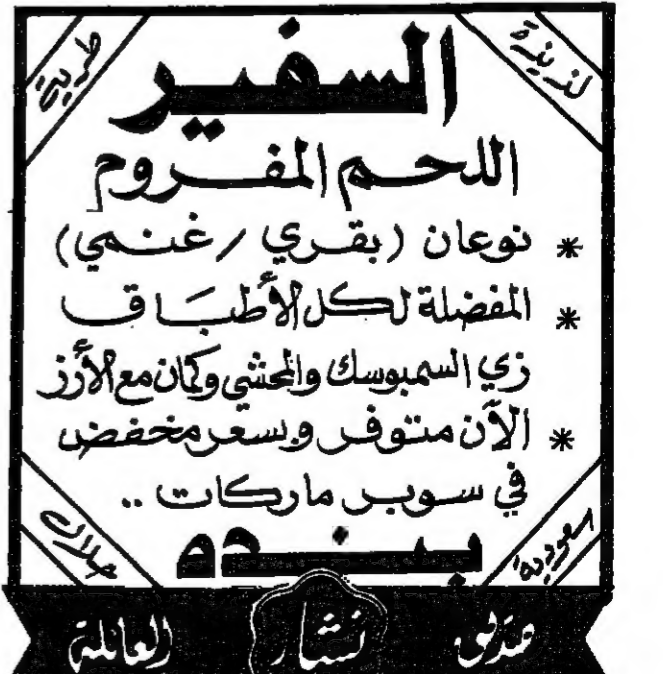 لذيذة
طرية
السفير
اللحم المفروم
* نوعان (بقري / غنمي)
* المفضلة لكل الأطباق
زي السمبوسك والمحشي وكمان مع الأرز
* الآن متوفر وبسعر مخفض
في سوبر ماركات ..
بنده
سعودية
حلال
صديق نشار العائلة